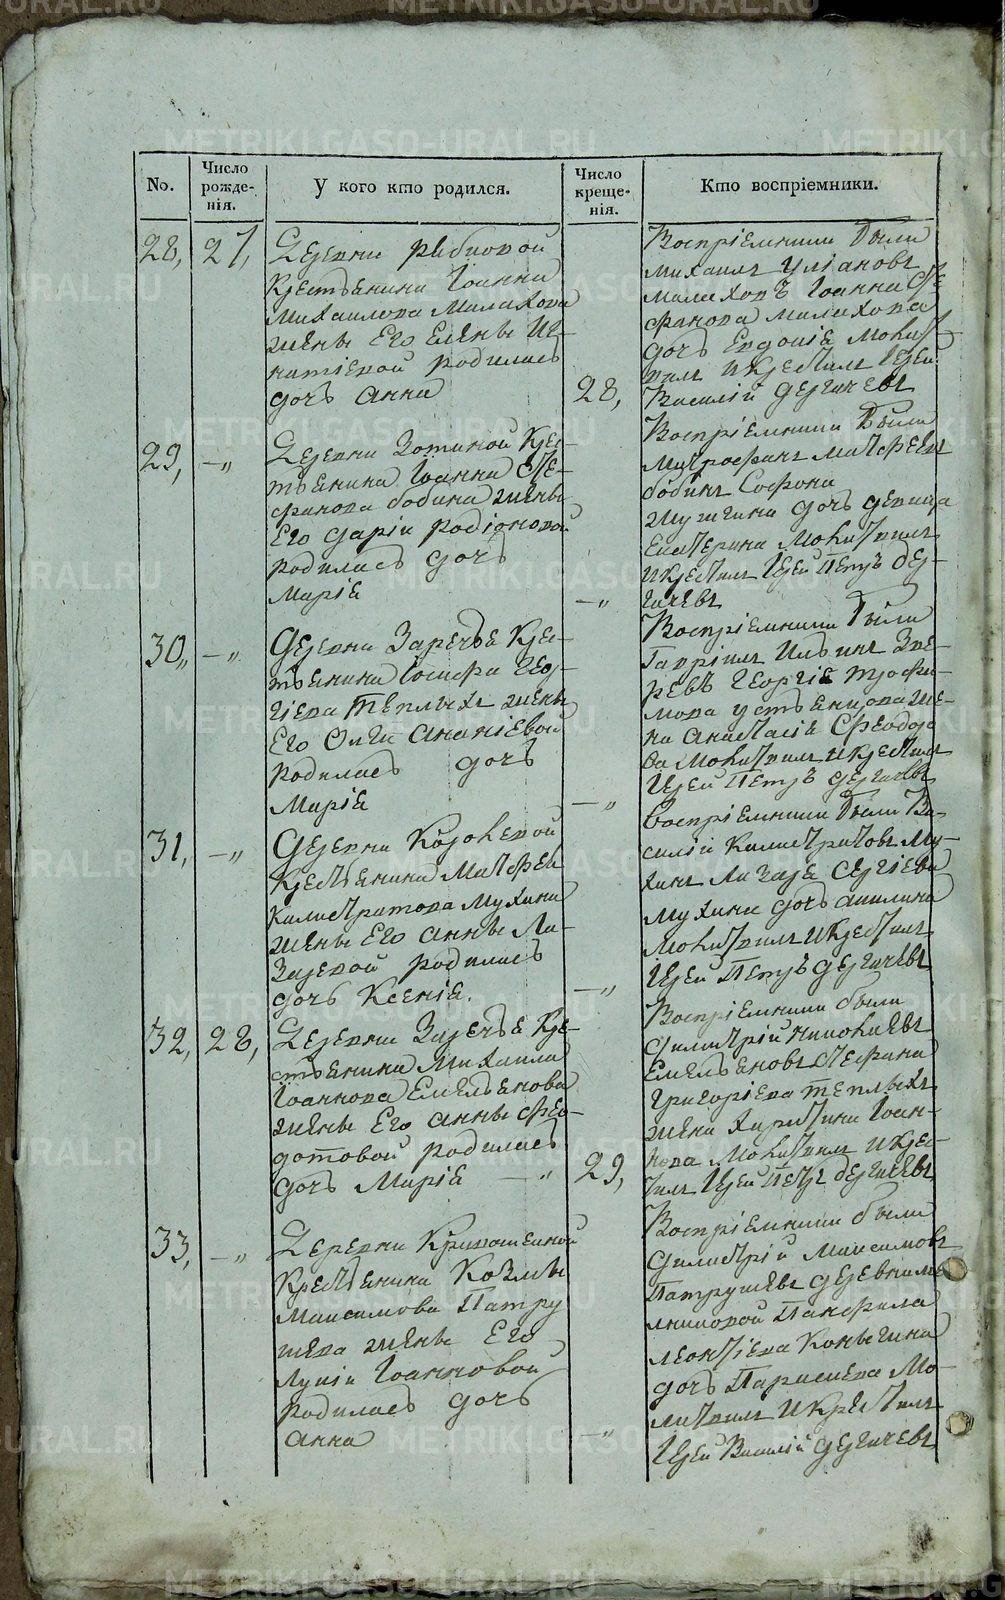 METRIKI.GASO-URAL.RU
No.
Число рожде-нія.
У кого кто родился.
Число креще-нія.
Кто воспріемники.
28, 27,
Деревни Рябиновой
Крестьянина Іоанна
Михаилова Малахова
жены Его Елены Иг-
натіевой родилась
дочь Анна
28,
Воспріемники были
Михаилъ Уліановъ
Малаховъ Іоанна Сте
фанова Малахова
дочь Евдокія Молит
вилъ и крестилъ Іерей
Василій Дергачевъ
29, —„
Деревни Зотиной Крес
тьянина Іоанна Сте-
фанова бобина жены
Его Дарьи Родіоновой
родилась дочь
Марія
—„
Воспріемники были
Митрофанъ Матфеевъ
бобинъ Софона
дочь девица
Екатерина Молитвилъ
и крестилъ Іерей Петръ Дер-
гачевъ
30„ —„
Деревни Заречья Крес-
тьянина Іосифа Геор
гіева Теплыхъ жены
Его Ольги Ананіевой
родилась дочь
Марія
—„
Воспріемники были
Гавріилъ Ильинъ Зве-
ревъ Георгія Трофи-
мова устьянцова же-
на Анастасія Феодоро
ва Молитвилъ и крестилъ
Іерей Петръ Дергачевъ
31, —„
Деревни Коровевой
Крестьянина Матфея
Калистратова Мухина
жены Его Анны Ла-
заревой родилась
дочь Ксенія.
—„
Воспріемники были Ва-
силій Калистратовъ Му-
хинъ Лазаря Сергіева
Мухина дочь Акилина
Молитвилъ и крестилъ
Іерей Петръ Дергачевъ
32, 28,
Деревни Заречья Кре-
стьянина Михаила
Іоаннова Емельянова
жены Его Анны Фео-
дотовой родилась
дочь Марія — „
29,
Воспріемники были
Димитрій
Емельяновъ Стефана
Григоріева Теплыхъ
жена Харитина Іоан-
нова Молитвилъ и крес-
тилъ Іерей Петръ Дергачевъ
33, —„
Деревни Кривошеиной
Крестьянина Козьмы
Максимова Патру
шева жены Его
Лукіи Іоанновой
родилась дочь
Анна
—„
Воспріемники были
Димитрій Максимовъ
Патрушевъ деревни
Панфила
Леонтіева Коньгина
дочь Парасцева Мо-
литвилъ и крестилъ
Іерей Василій Дергачевъ